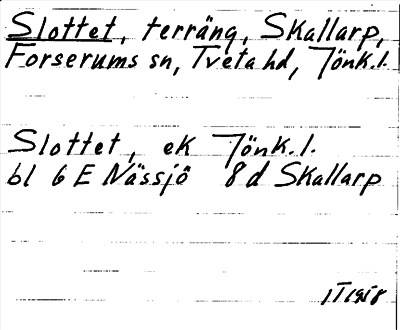 Slottet, terräng, Skallarp,
Forserums sn, Tveta hd, Jönk.l.
Slottet, ek Jönk.l.
bl 6 E Nässjö 8d Skallarp